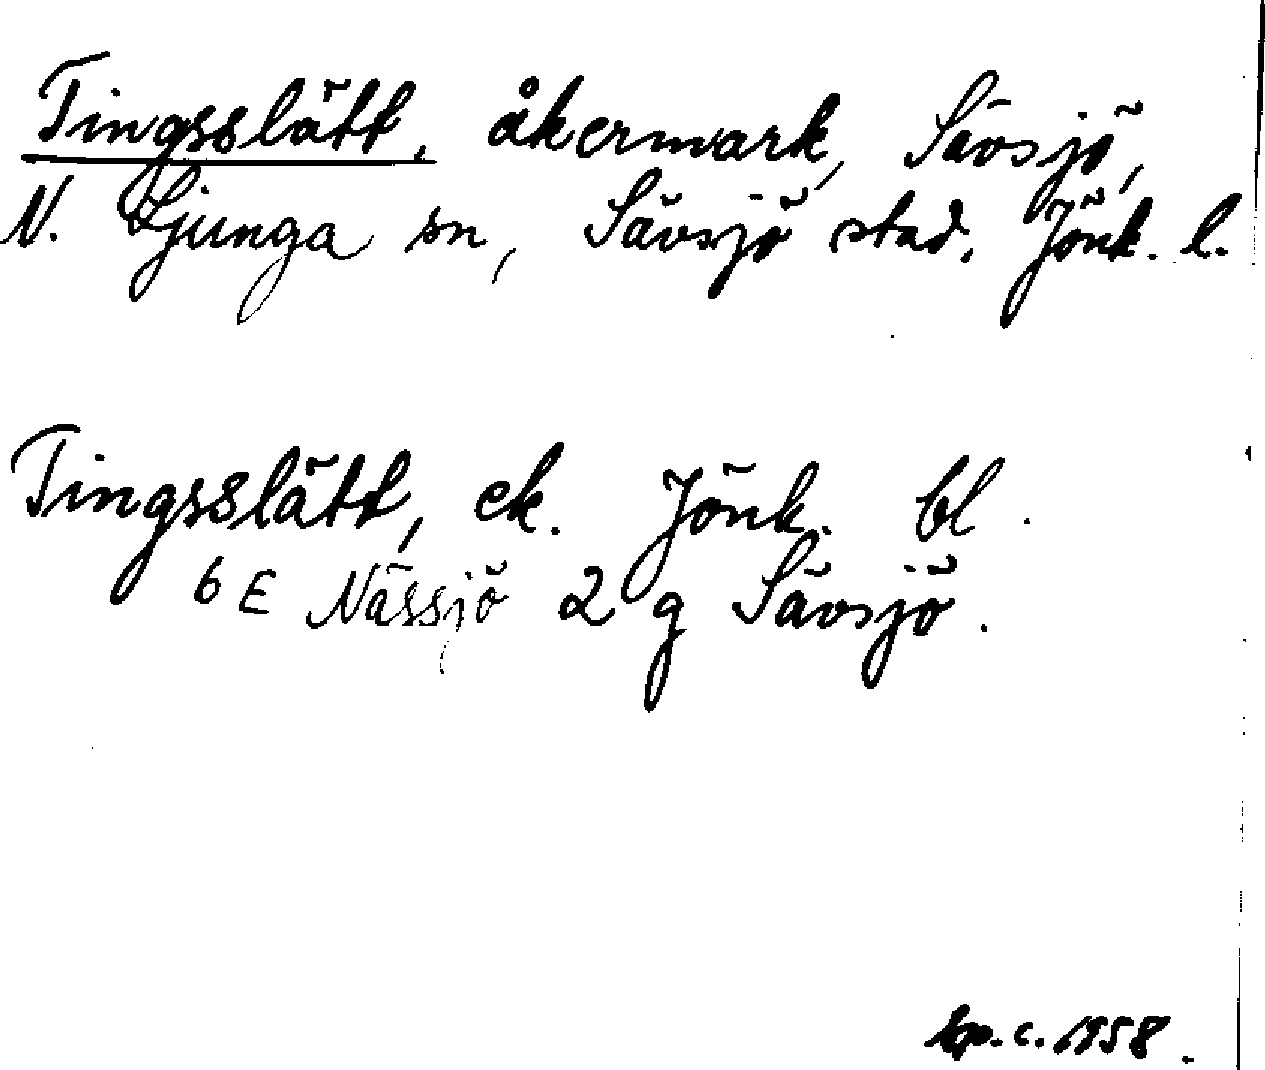 Tingsslätt, åkermark, Sävsjö,
N. Ljunga sn, Sävsjö stad. Jönk. l.
Tingsslätt, ek. Jönk. bl.
6 E Nässjö 2 g Sävsjö.
c. 1958.